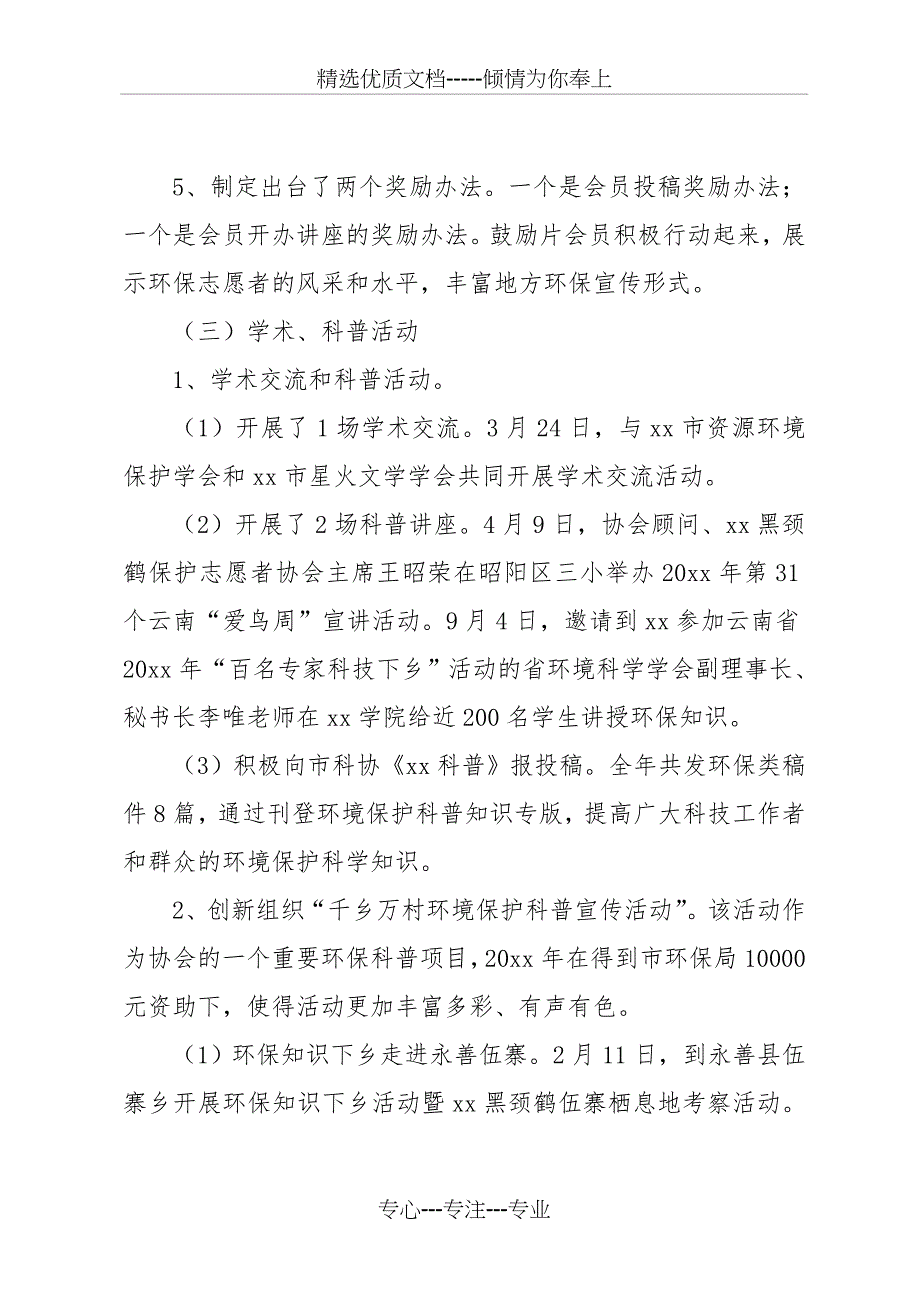 精选优质文档-----倾情为你奉上
5、制定出台了两个奖励办法。一个是会员投稿奖励办法；
一个是会员开办讲座的奖励办法。鼓励片会员积极行动起来，展
示环保志愿者的风采和水平，丰富地方环保宣传形式。
（三）学术、科普活动
1、学术交流和科普活动。
（1）开展了 1 场学术交流。3 月 24 日，与 xx 市资源环境
保护学会和 xx 市星火文学学会共同开展学术交流活动。
（2）开展了 2 场科普讲座。4 月 9 日，协会顾问、xx 黑颈
鹤保护志愿者协会主席王昭荣在昭阳区三小举办 20xx 年第 31
个云南“爱鸟周”宣讲活动。9 月 4 日，邀请到 xx 参加云南省
20xx 年“百名专家科技下乡”活动的省环境科学学会副理事长、
秘书长李唯老师在 xx 学院给近 200 名学生讲授环保知识。
（3）积极向市科协《xx 科普》报投稿。全年共发环保类稿
件 8 篇，通过刊登环境保护科普知识专版，提高广大科技工作者
和群众的环境保护科学知识。
2、创新组织“千乡万村环境保护科普宣传活动”。该活动作
为协会的一个重要环保科普项目，20xx 年在得到市环保局 10000
元资助下，使得活动更加丰富多彩、有声有色。
（1）环保知识下乡走进永善伍寨。2 月 11 日，到永善县伍
寨乡开展环保知识下乡活动暨 xx 黑颈鹤伍寨栖息地考察活动。
专心---专注---专业